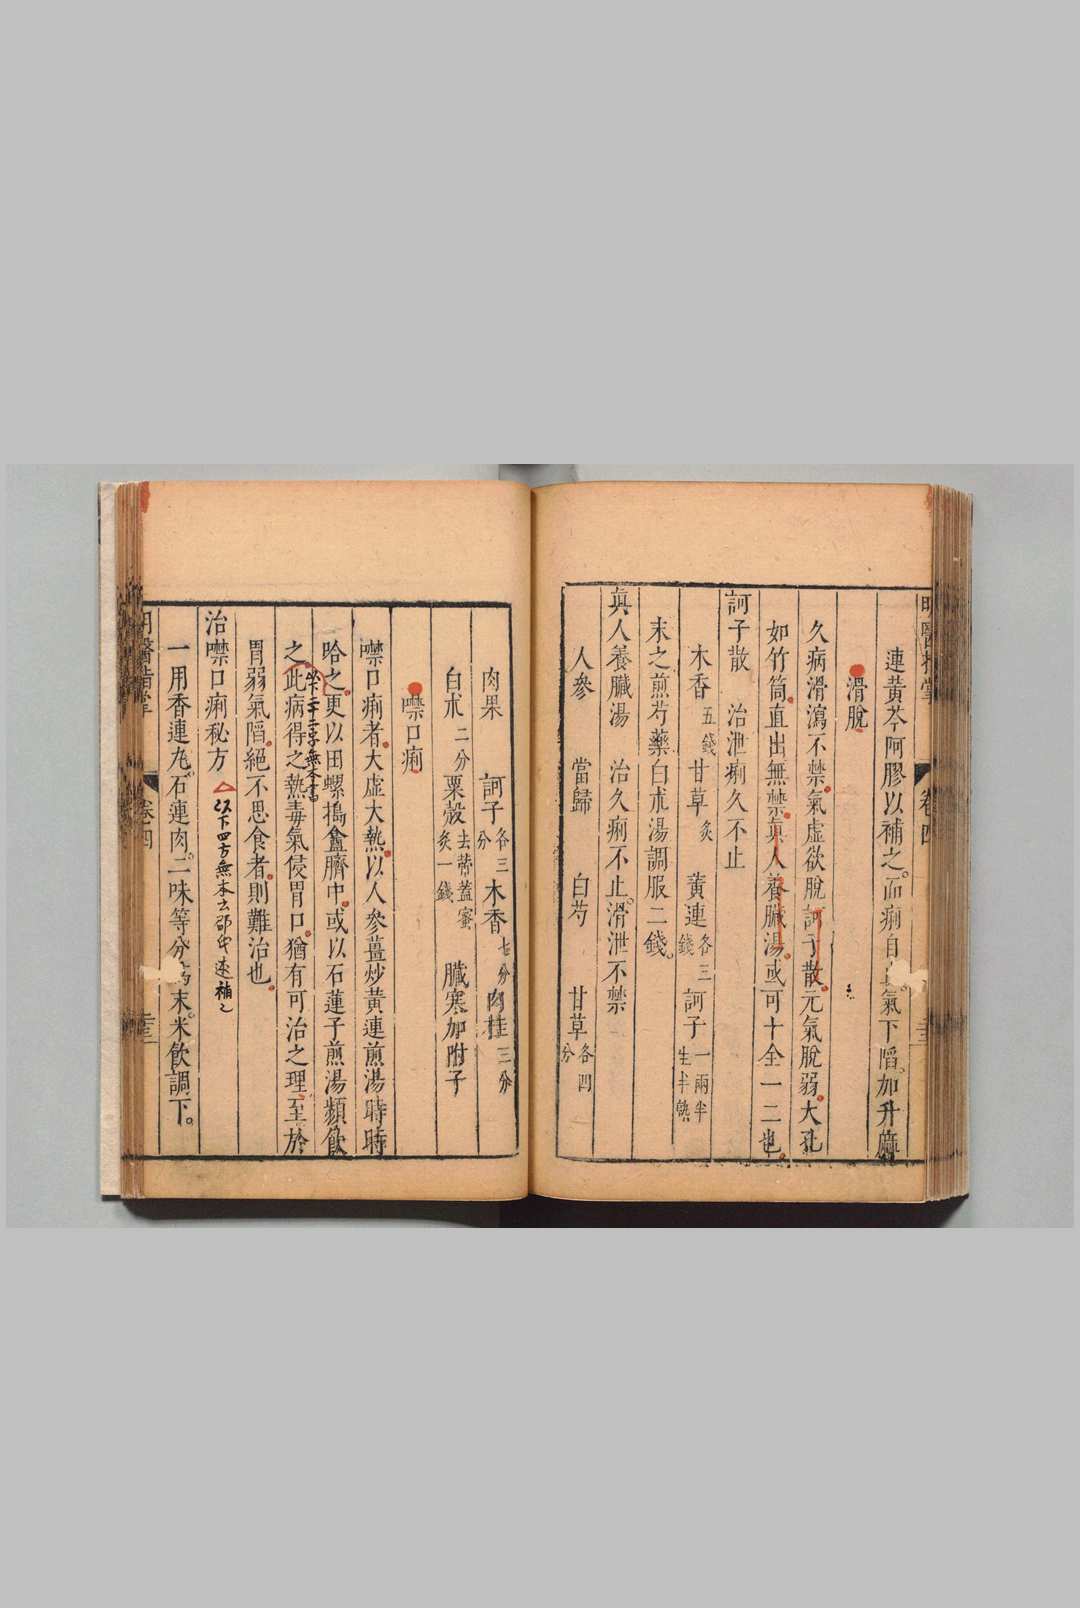 連黃芩阿膠以補之而痢自止氣下陷加升麻
滑脫
久病滑瀉不禁氣虛欲脫訶子散元氣脫弱大孔
如竹筒直出無禁真人養臟湯或可十全一二也
訶子散 治泄痢久不止
木香五錢 甘草炙 黃連各三錢 訶子一兩半生半熟
末之煎芍藥白朮湯調服二錢
眞人養臟湯 治久痢不止滑泄不禁
人參 當歸 白芍 甘草各四分
肉果 訶子各三分 木香七分 肉桂三分
白朮二分 粟殼去蒂蓋蜜炙一錢 臟寒加附子
噤口痢
噤口痢者大虛大熱以人參薑炒黃連煎湯時時
哈之更以田螺搗盦臍中或以石蓮子煎湯頻飲
之此病得之熱毒氣侵胃口猶有可治之理至於
胃弱氣陷絕不思食者則難治也
治噤口痢秘方
以下四方無本文邵氏遂補之
一用香連丸石連肉二味等分為末米飲調下
明醫指掌 卷四